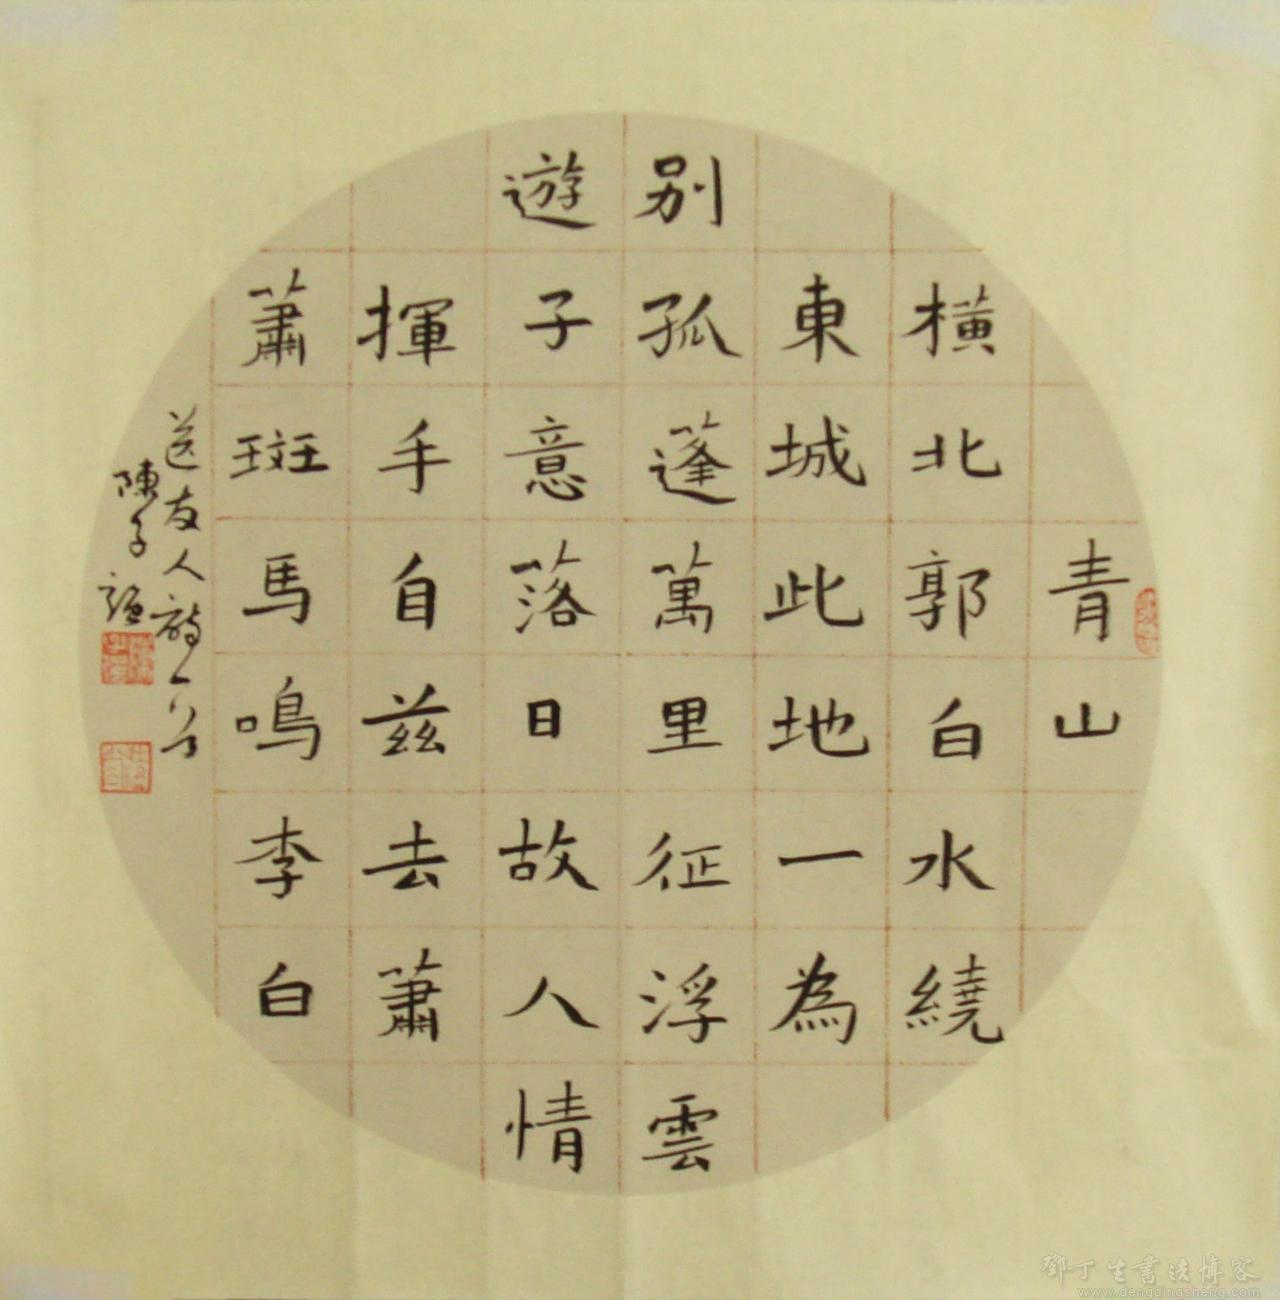 青山
橫北郭白水繞
東城此地一為
别孤蓬萬里征浮雲
遊子意落日故人情
揮手自兹去蕭
蕭斑馬鳴李白
送友人詩一首
陳子
鄧丁生書法博客
www.dengdingsheng.com